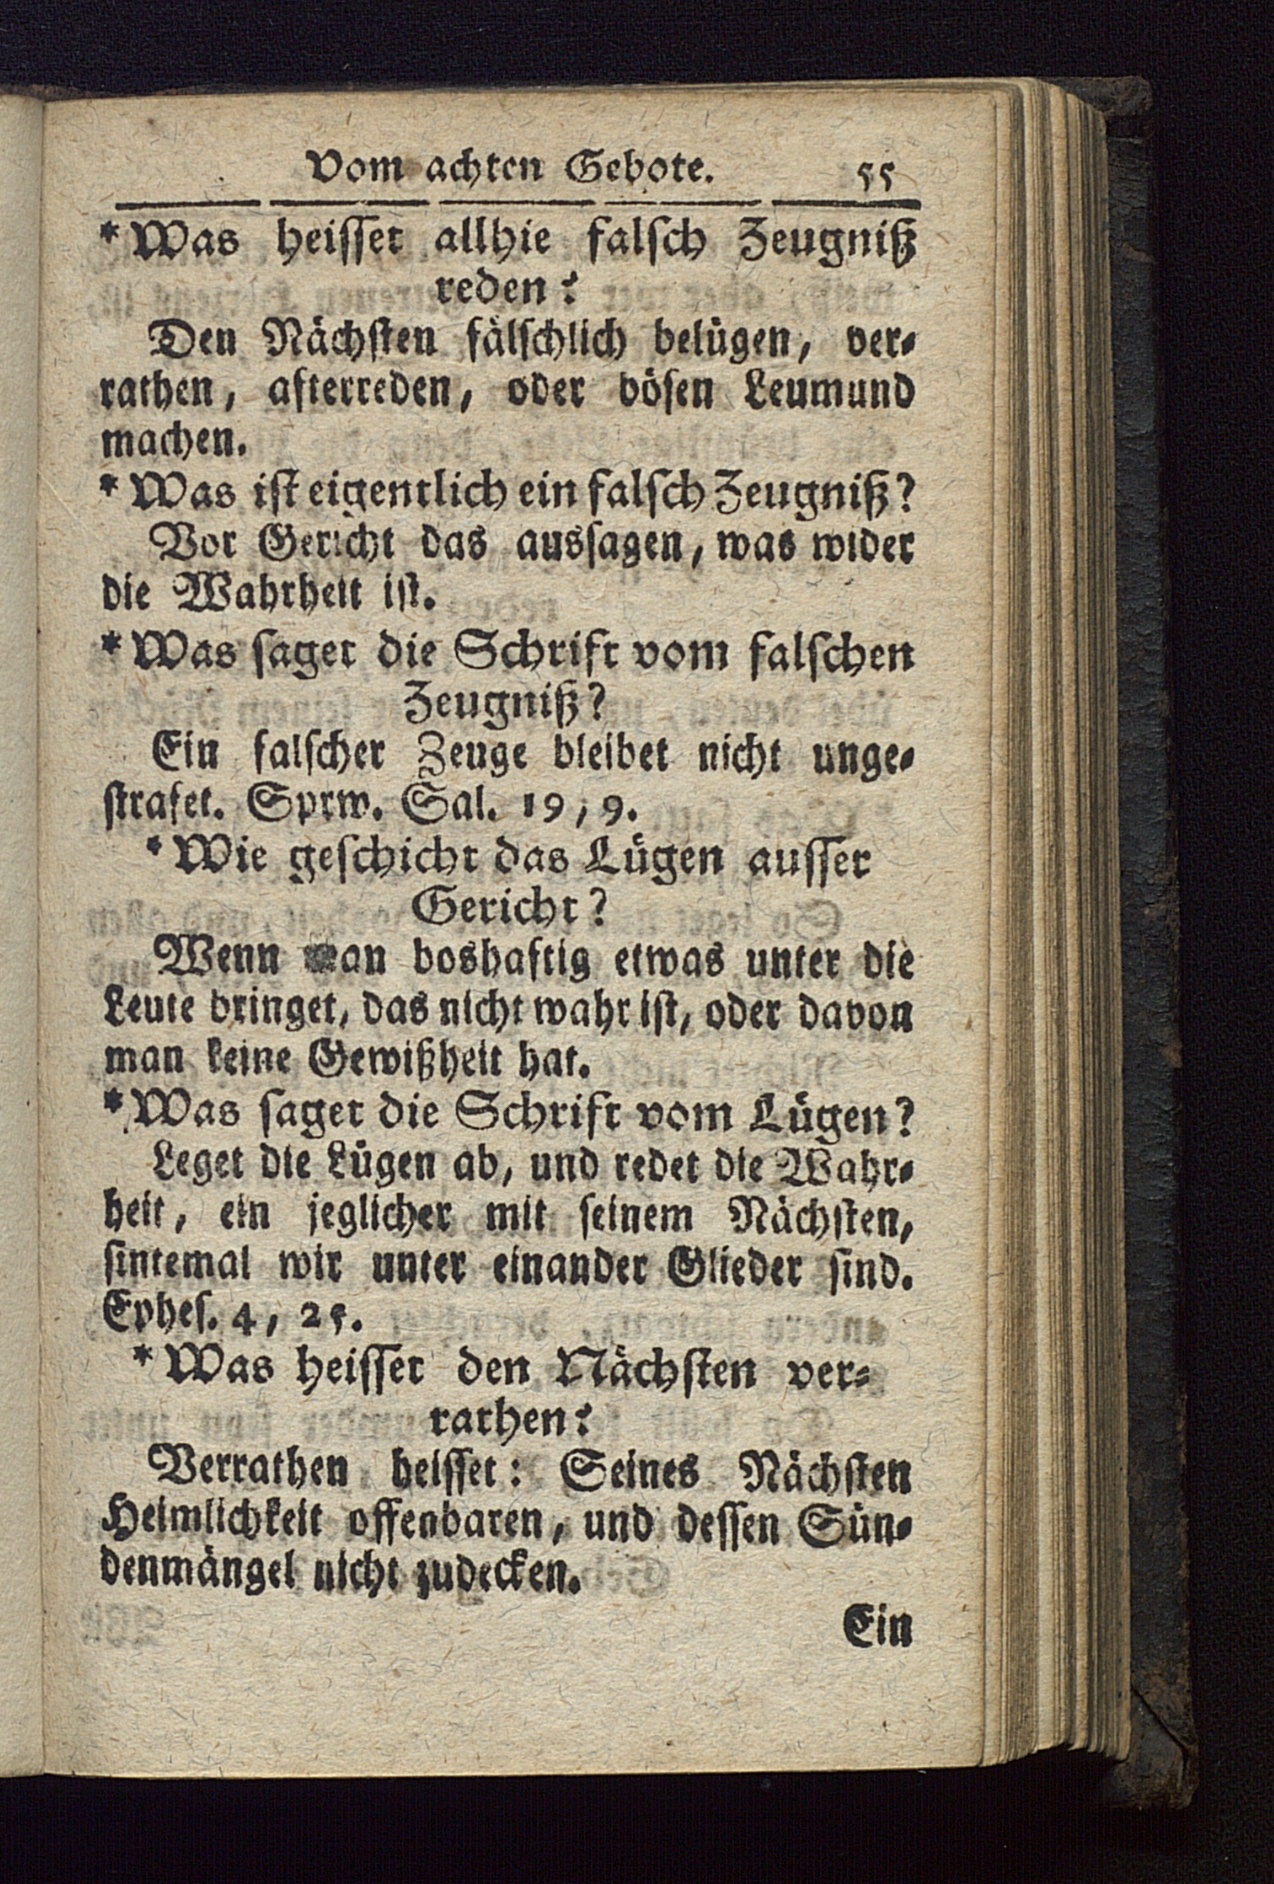 Vom achten Gebote. 55
* Was heisset allhie falsch Zeugniß
reden?
Den Nächsten fälschlich belügen, ver-
rathen, afterreden, oder bösen Leumund
machen.
* Was ist eigentlich ein falsch Zeugniß?
Vor Gericht das aussagen, was wider
die Wahrheit ist.
* Was saget die Schrift vom falschen
Zeugniß?
Ein falscher Zeuge bleibet nicht unge-
strafet. Sprw. Sal. 19, 9.
* Wie geschicht das Lügen ausser
Gericht?
Wenn man boshaftig etwas unter die
Leute bringet, das nicht wahr ist, oder davon
man keine Gewißheit hat.
* Was saget die Schrift vom Lügen?
Leget die Lügen ab, und redet die Wahr-
heit, ein jeglicher mit seinem Nächsten,
sintemal wir unter einander Glieder sind.
Ephes. 4, 25.
* Was heisset den Nächsten ver-
rathen?
Verrathen heisset: Seines Nächsten
Heimlichkeit offenbaren, und dessen Sün-
denmängel nicht zudecken.
Ein